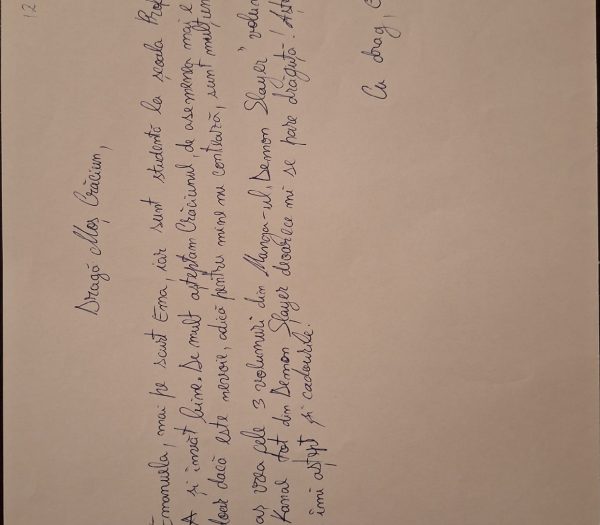 12
Dragă Moș Crăciun,
Emanuela, mai pe scurt Ema, iar sunt studentă la școala Prof
A și învăt bine. De mult așteptam Crăciunul, de asemenea mai e
doar dacă este nevoie, adică pentru mine nu contează, sunt mulțum
as vrea cele 3 volumuri din Manga-ul „Demon Slayer" volum
Kanao tot din Demon Slayer deoarece mi se pare drăguță! Așt
îmi aștept și cadourile.
Cu drag,